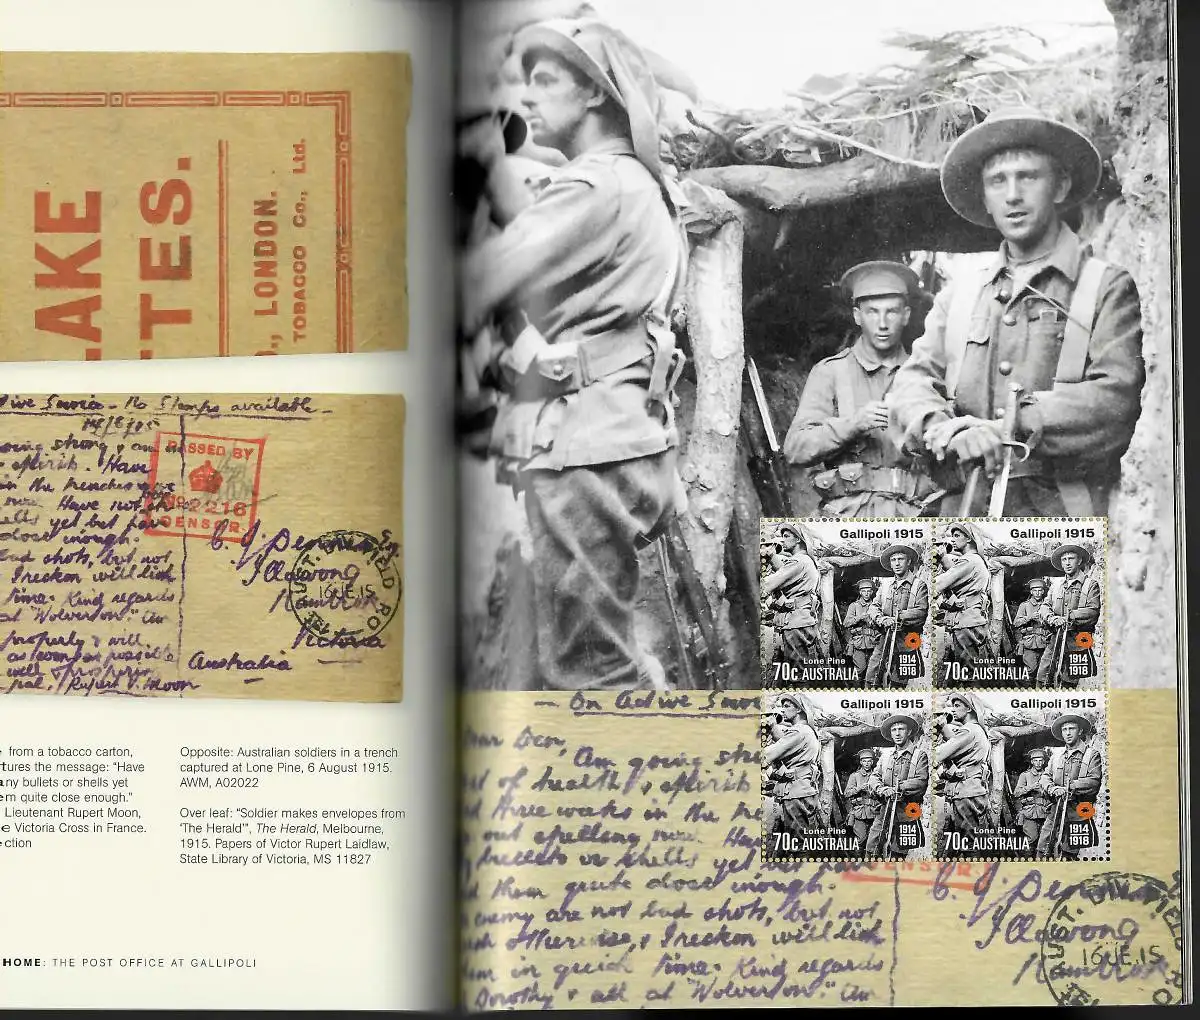 LAKE
TES.
LONDON.
TOBACCO Co., Ltd.
ive Service - No Stamps available -
14/6/15
going strong & am in
spirits. Have
in the trenches
now. Have not
shells yet but have
close enough.
bad shots, but not
I reckon will dish
time. Kind regards
at "Wolverton." Am
properly & will
as soon as possible
well &
pal, Rupert V. Moon
PASSED BY
No 2218
CENSOR.
C. J.
Illawong
Victoria
Australia
AUST. FIELD P.O.
16 JE. 15
from a tobacco carton,
tures the message: “Have
any bullets or shells yet
em quite close enough.”
Lieutenant Rupert Moon,
e Victoria Cross in France.
ction
Opposite: Australian soldiers in a trench
captured at Lone Pine, 6 August 1915.
AWM, A02022
Over leaf: “Soldier makes envelopes from
‘The Herald’”, The Herald, Melbourne,
1915. Papers of Victor Rupert Laidlaw,
State Library of Victoria, MS 11827
HOME: THE POST OFFICE AT GALLIPOLI
Gallipoli 1915
Lone Pine
70c AUSTRALIA
1914
1918
Gallipoli 1915
Lone Pine
70c AUSTRALIA
1914
1918
Gallipoli 1915
Lone Pine
70c AUSTRALIA
1914
1918
Gallipoli 1915
Lone Pine
70c AUSTRALIA
1914
1918
- On Active Servi
Dear Deon,
Am going stro
st of health & spirits
d three weeks in the
out spelling now. Hav
bullets or shells yet but have
d them quite close enough.
enemy are not bad shots, but not
otherwise, & I reckon will dish
em in quick time. Kind regards
Dorothy & all at "Wolverton." Am
CENSOR.
C. J.
Illawong
AUST. DIV. FIELD
16 JE. 15